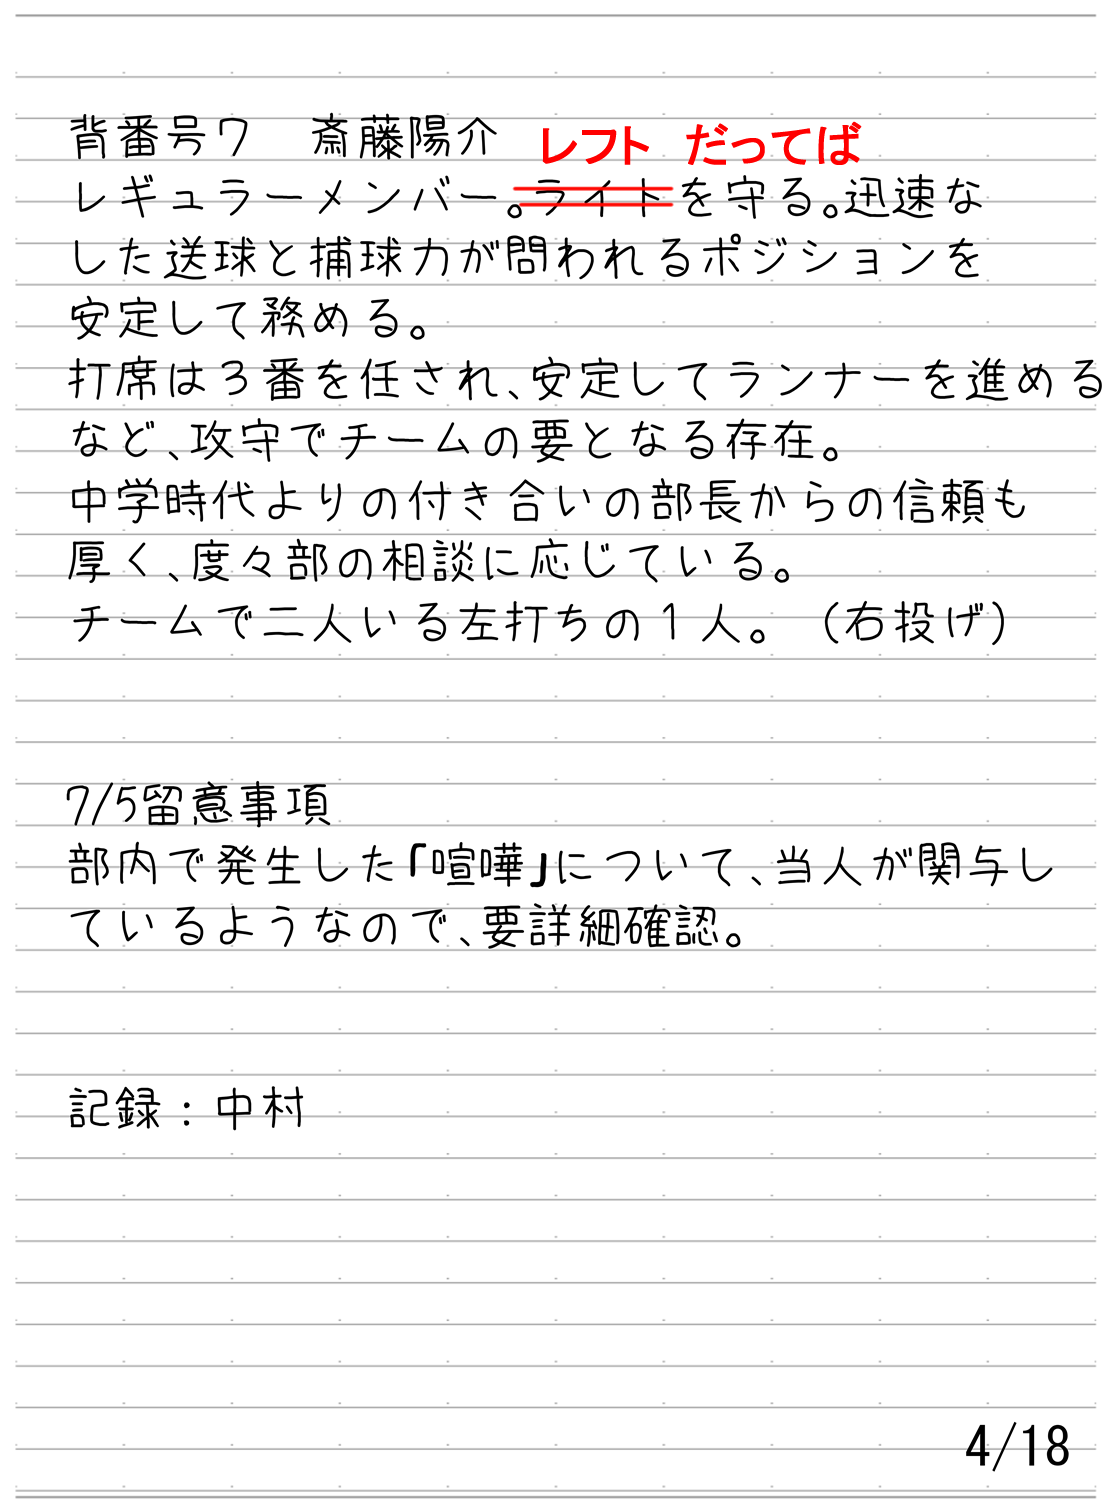 背番号7　斎藤陽介
レフト　だってば
レギュラーメンバー。ライトを守る。迅速な
した送球と捕球力が問われるポジションを
安定して務める。
打席は3番を任され、安定してランナーを進める
など、攻守でチームの要となる存在。
中学時代よりの付き合いの部長からの信頼も
厚く、度々部の相談に応じている。
チームで二人いる左打ちの1人。（右投げ）
7/5留意事項
部内で発生した「喧嘩」について、当人が関与し
ているようなので、要詳細確認。
記録：中村
4/18